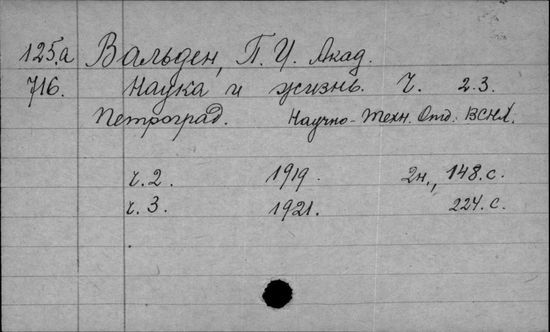 125.а Вальден, П. И. Акад.
716. Наука и жизнь. Ч. 2.3.
Петроград. Научно-Техн. Отд. ВСНХ.
ч. 2. 1919. 2н., 148. с.
ч. 3. 1921. 224. с.